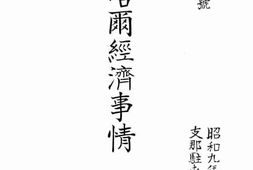 號
哈爾經濟事情
昭和九年
支那駐